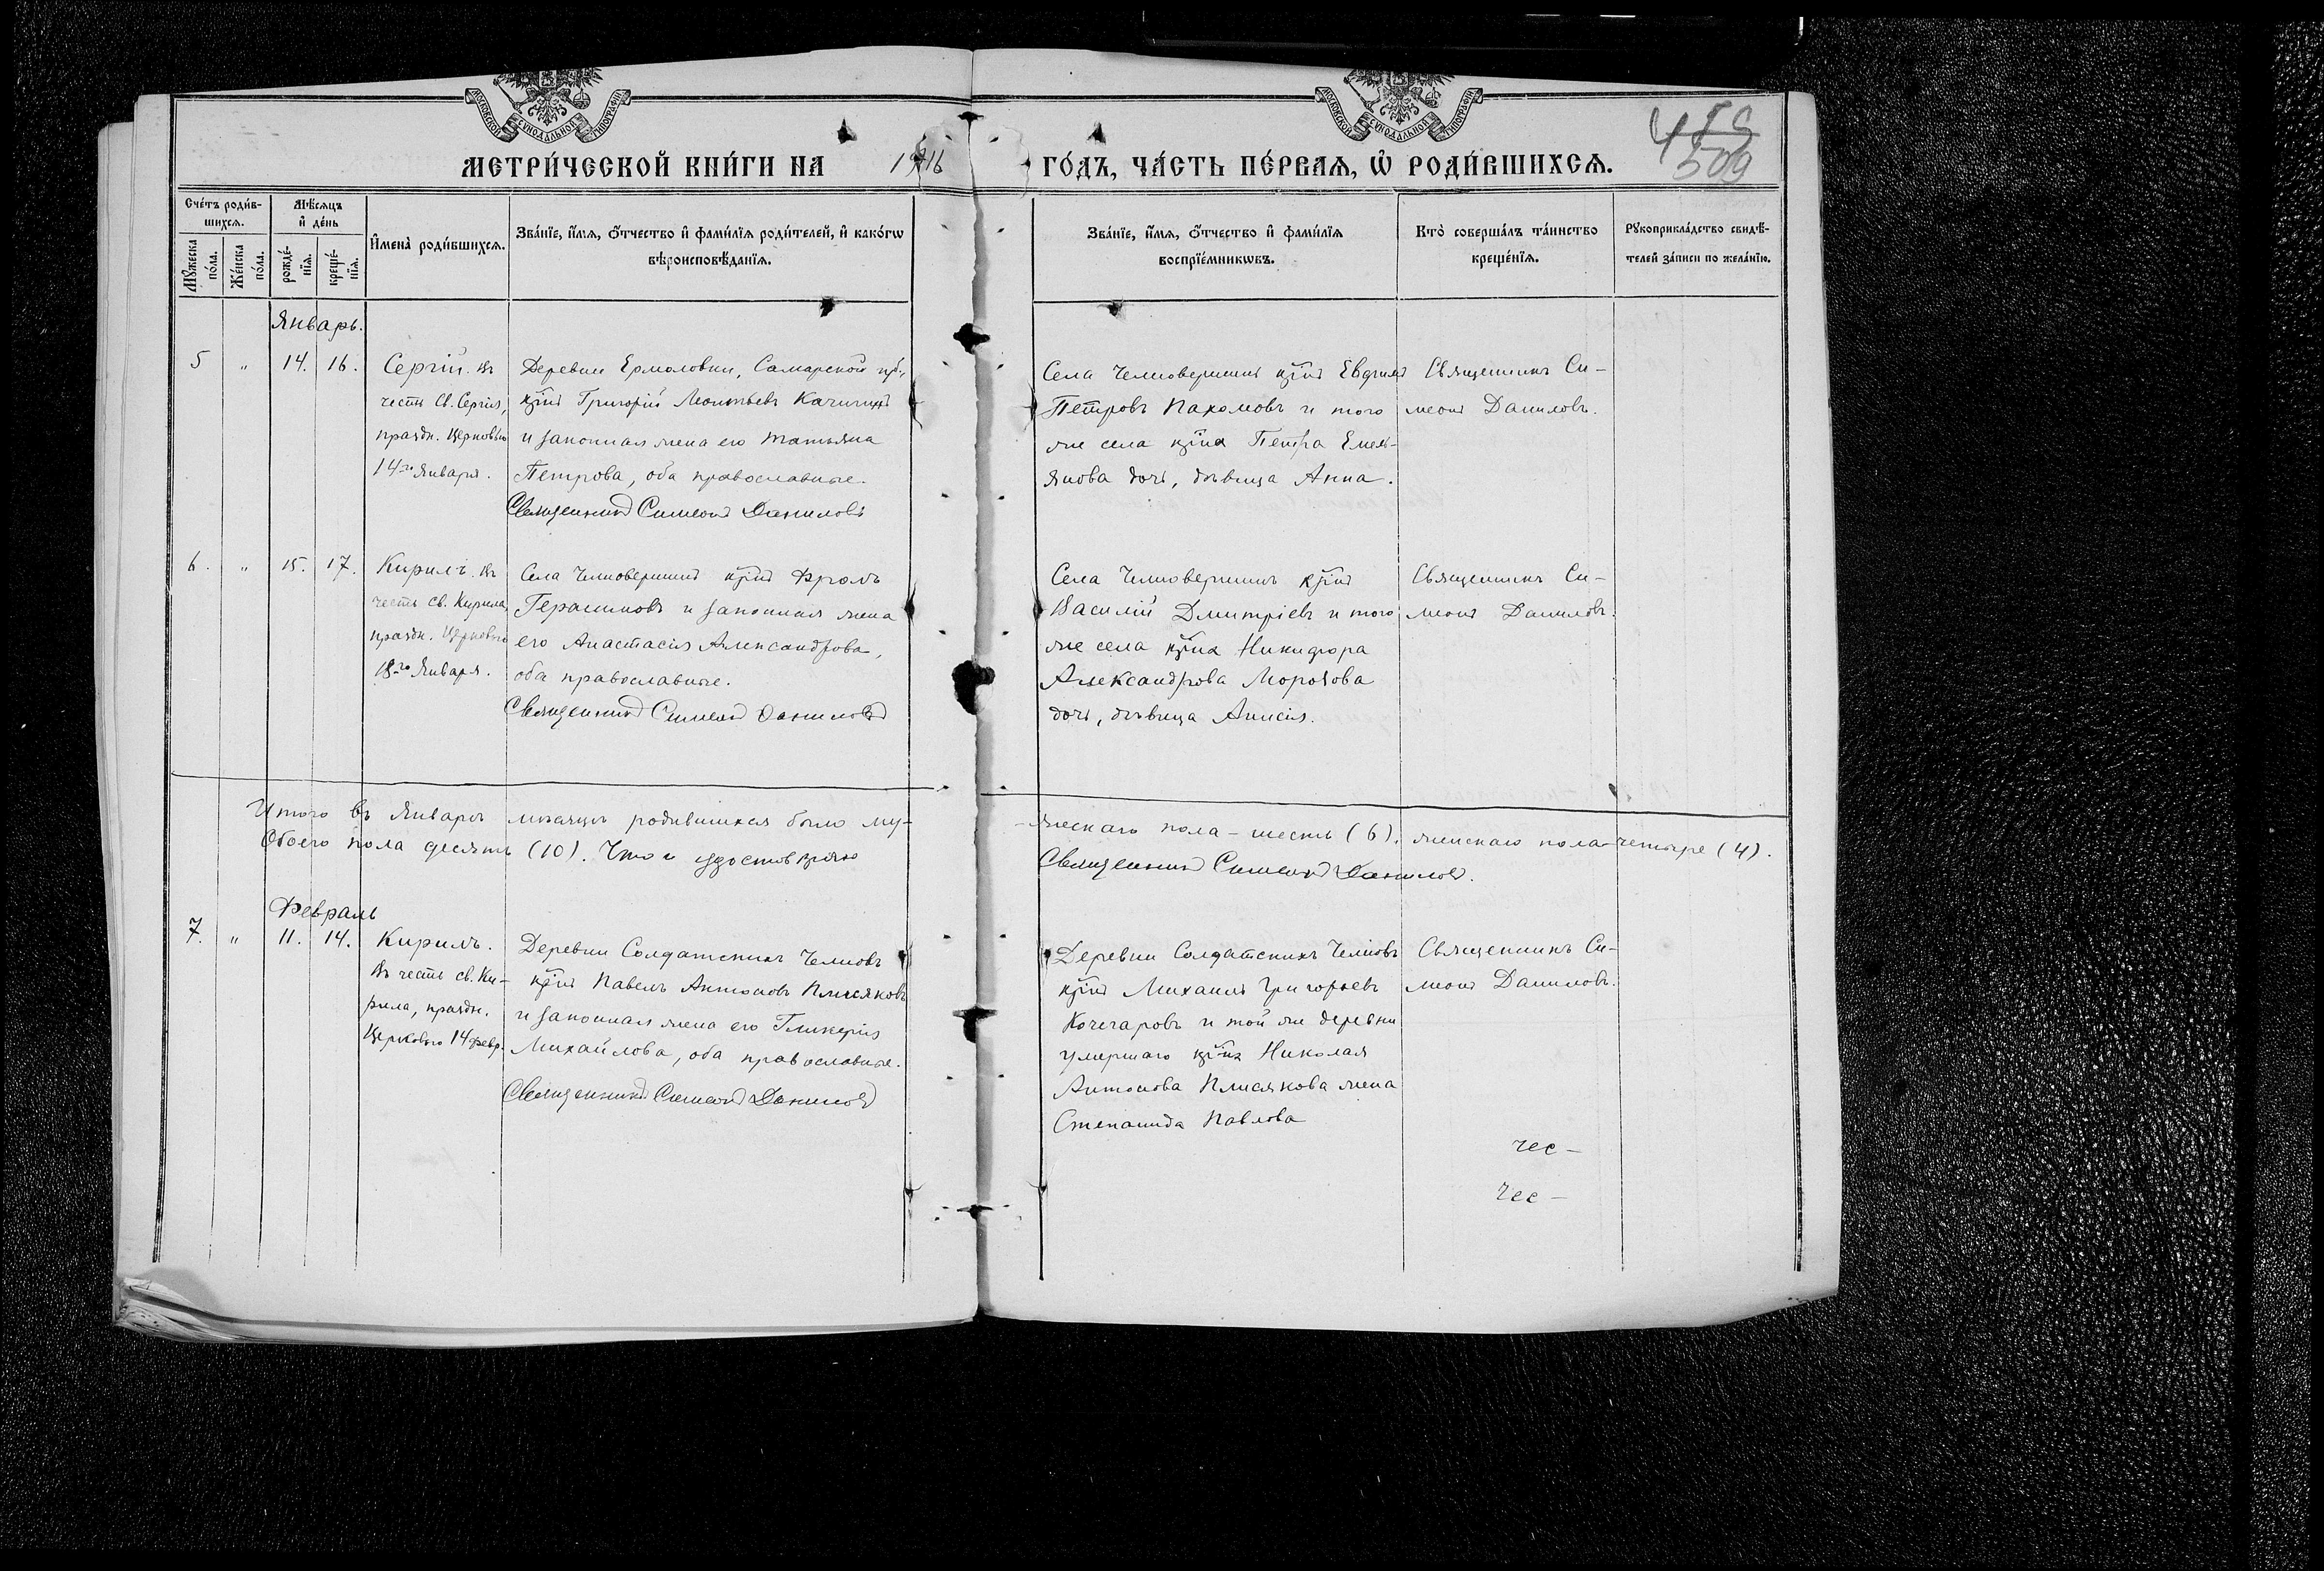 МОСКОВСКОЙ СѴНОДАЛЬНОЙ ТИПОГРАФІИ
МОСКОВСКОЙ СѴНОДАЛЬНОЙ ТИПОГРАФІИ
509
МЕТРИ́ЧЕСКОЙ КНИ́ГИ НА 1916 ГО́ДЪ, ЧА́СТЬ ПЕ́РВАЯ, Ѡ РОДИ́ВШИХСЯ.
Сче́тъ роди́в-
шихся.
Мꙋ́жеска по́ла.
Же́нска по́ла.
Мѣ́сяцъ
и де́нь
рожде́-
нїя.
креще́-
нїя.
Имена̀ роди́вшихся.
Зва́нїе, и́мя, о́тчество и фами́лїя роди́телей, и како́гѡ
вѣроисповѣ́данїя.
Зва́нїе, и́мя, о́тчество и фами́лїя
воспрїе́мникѡвъ.
Кто̀ соверша́лъ та́инство
креще́нїя.
Рꙋкоприкла́дство свидѣ́-
телей за́писи по жела́нїю.
Январь.
5 " 14. 16.
Сергій. Въ
честь Св. Сергія,
праздн. Церковью
14го Января.
Деревни Ермоловки, Самарской
крⷭ҇нъ Григорій Леонтьевъ
и законная жена его Татьяна
Петрова, оба православные.
Священникъ Симеонъ Даниловъ
Села Челновершинъ крⷭ҇нъ Евфимъ
Петровъ Пахомовъ и того
же села крⷭ҇на Петра Емель-
янова дочь, дѣвица Анна.
Священникъ Си-
меонъ Даниловъ.
6. " 15. 17.
Кирилъ. Въ
честь св. Кирила,
праздн. Церковью
18го Января.
Села Челновершинъ крⷭ҇нъ Фролъ
Герасимовъ и законная жена
его Анастасія Александрова,
оба православные.
Священникъ Симеонъ Даниловъ
Села Челновершинъ крⷭ҇нъ
Василій Дмитріевъ и того
же села крⷭ҇на Никифора
Александрова Морозова
дочь, дѣвица Анисія.
Священникъ Си-
меонъ Даниловъ.
Итого въ Январѣ мѣсяцѣ родившихся было му-
-жескаго пола - шесть (6). женскаго пола - четыре (4).
Обоего пола десять (10). Что и удостовѣряю
Священникъ Симеонъ Даниловъ.
Февраль
7. " 11. 14.
Кирилъ.
Въ честь св. Ки-
рила, праздн.
Церковью 14 февр.
Деревни Солдатскихъ Челновъ
крⷭ҇нъ Павелъ Антоновъ Плисяковъ
и законная жена его Гликерія
Михайлова, оба православные.
Священникъ Симеонъ Даниловъ
Деревни Солдатскихъ Челновъ
крⷭ҇нъ Михаилъ Григорьевъ
Кочегаровъ и той же деревни
умершаго крⷭ҇на Николая
Антонова Плисякова жена
Степанида Павлова
Священникъ Си-
меонъ Даниловъ.
чес-
Чес-